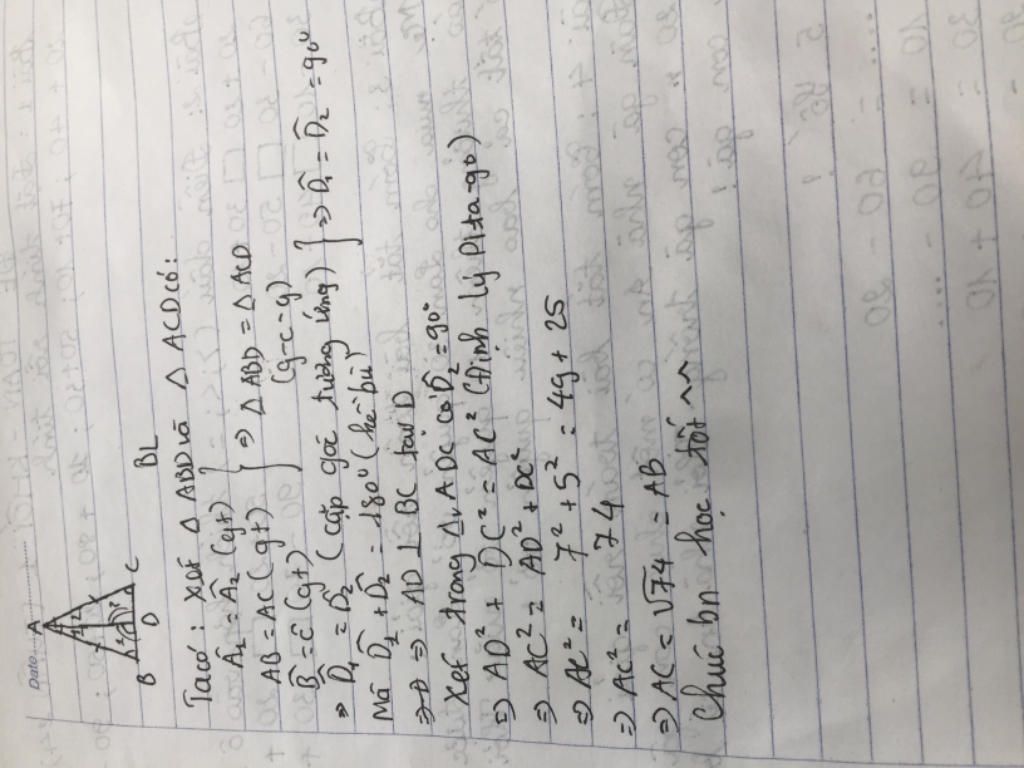 Date
A
B D C
BL
Ta có : xét Δ ABD và Δ ACD có :
Â₁ = Â₂ (gt)
AB = AC (gt) } ⇒ Δ ABD = Δ ACD
B̂ = Ĉ (gt) (g-c-g)
⇒ D̂₁ = D̂₂ (cặp góc tương ứng) } ⇒ D̂₁ = D̂₂ = 90⁰
Mà D̂₁ + D̂₂ = 180⁰ (kề bù)
⇒ AD ⊥ BC tại D
Xét trong Δv ADC có D̂₂ = 90⁰
⇒ AD² + DC² = AC² (Định lý Pi-ta-go)
⇒ AC² = AD² + DC²
⇒ AC² = 7² + 5² = 49 + 25
⇒ AC² = 74
⇒ AC = √74 = AB
Chúc bn học tốt ~~